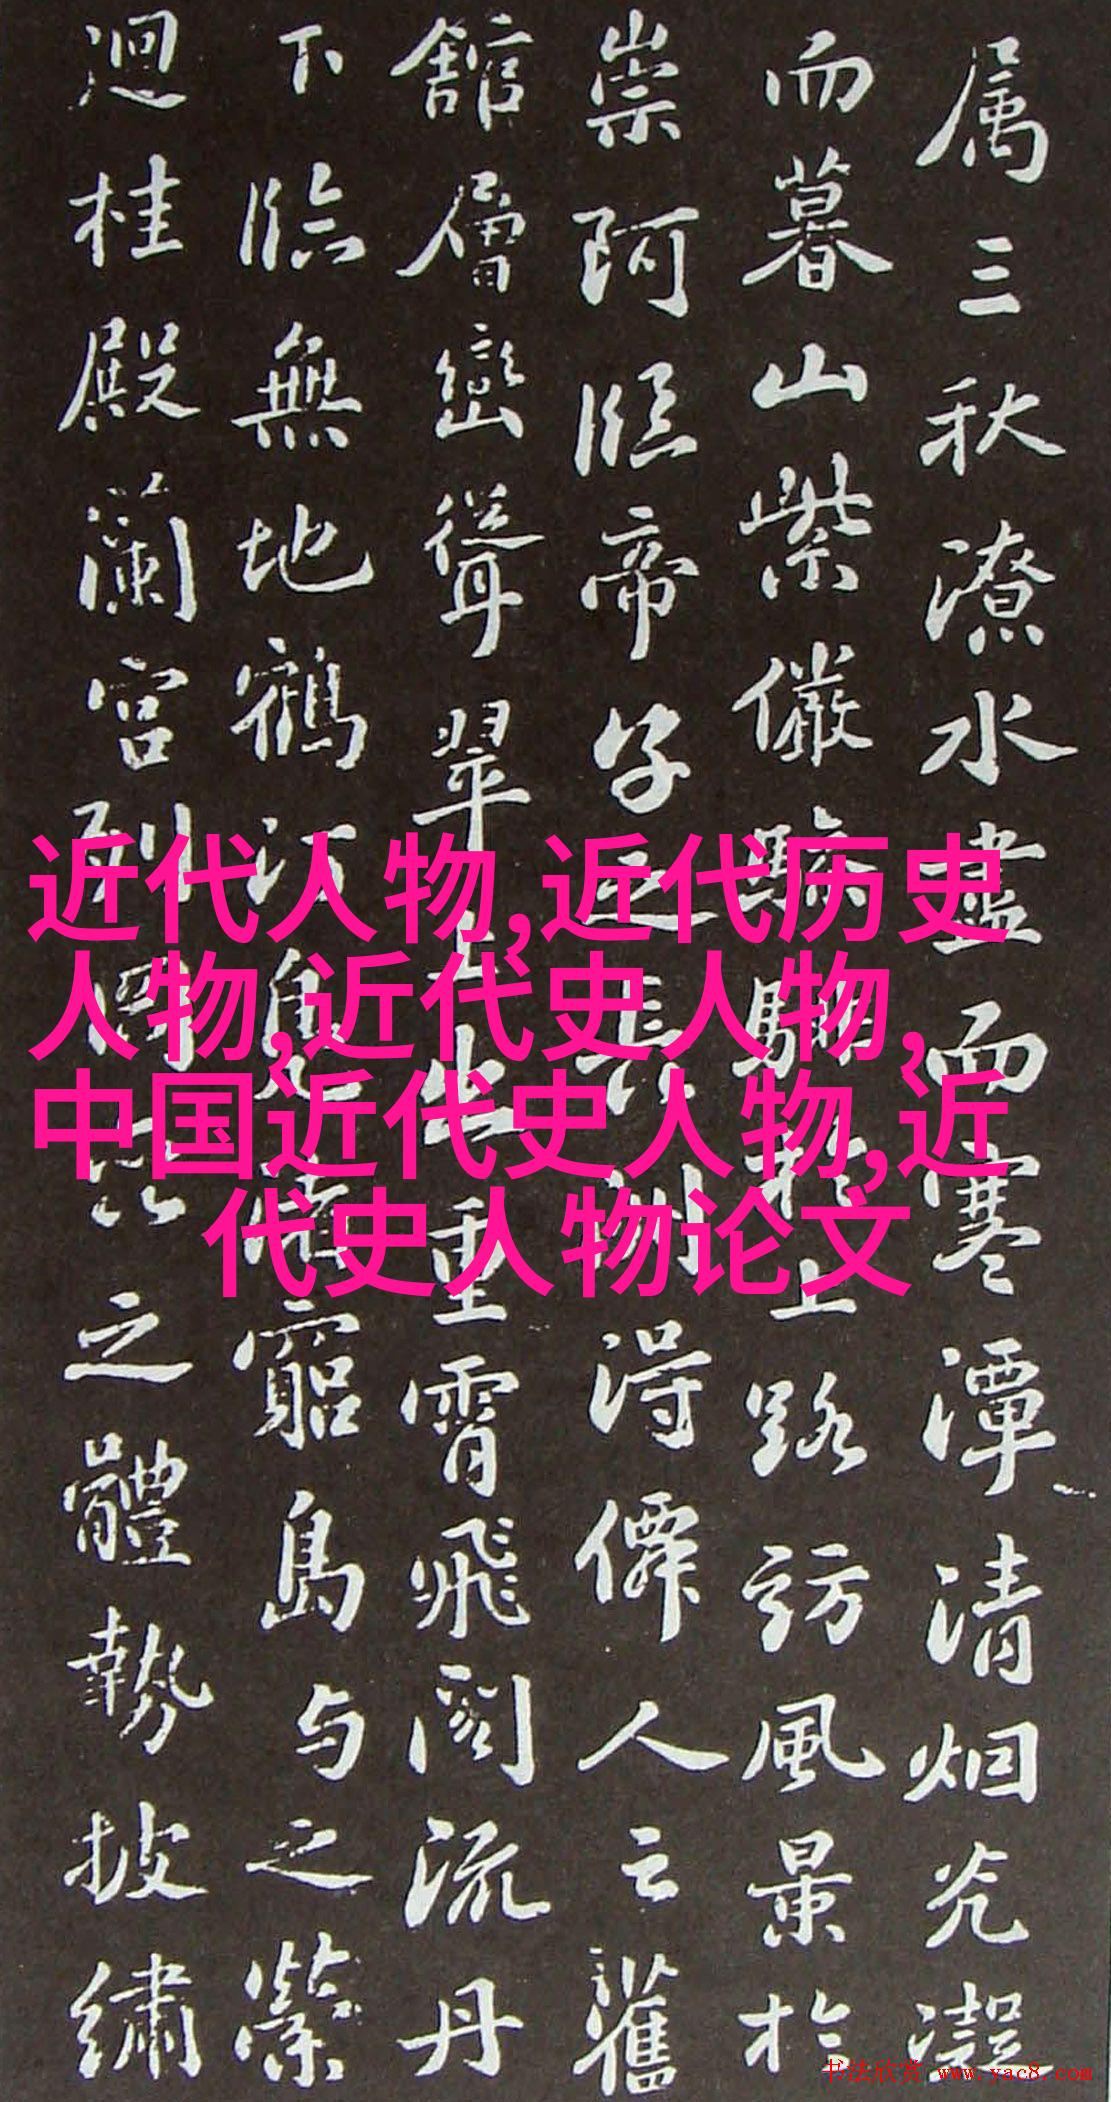 属三秋潦水盡而寒潭清烟光凝
而暮山紫儼驂騑於上路訪風景於
崇阿臨帝子之長洲得僊人云舊
館層巒聳翠上出重霄飛閣流丹
下臨無地鶴汀鳧渚窮島与之縈
迴桂殿蘭宮列岡之體勢披繡
近代人物,近代历史
人物,近代史人物,
中国近代史人物,近
代史人物论文
书法欣赏 www.yac8.com